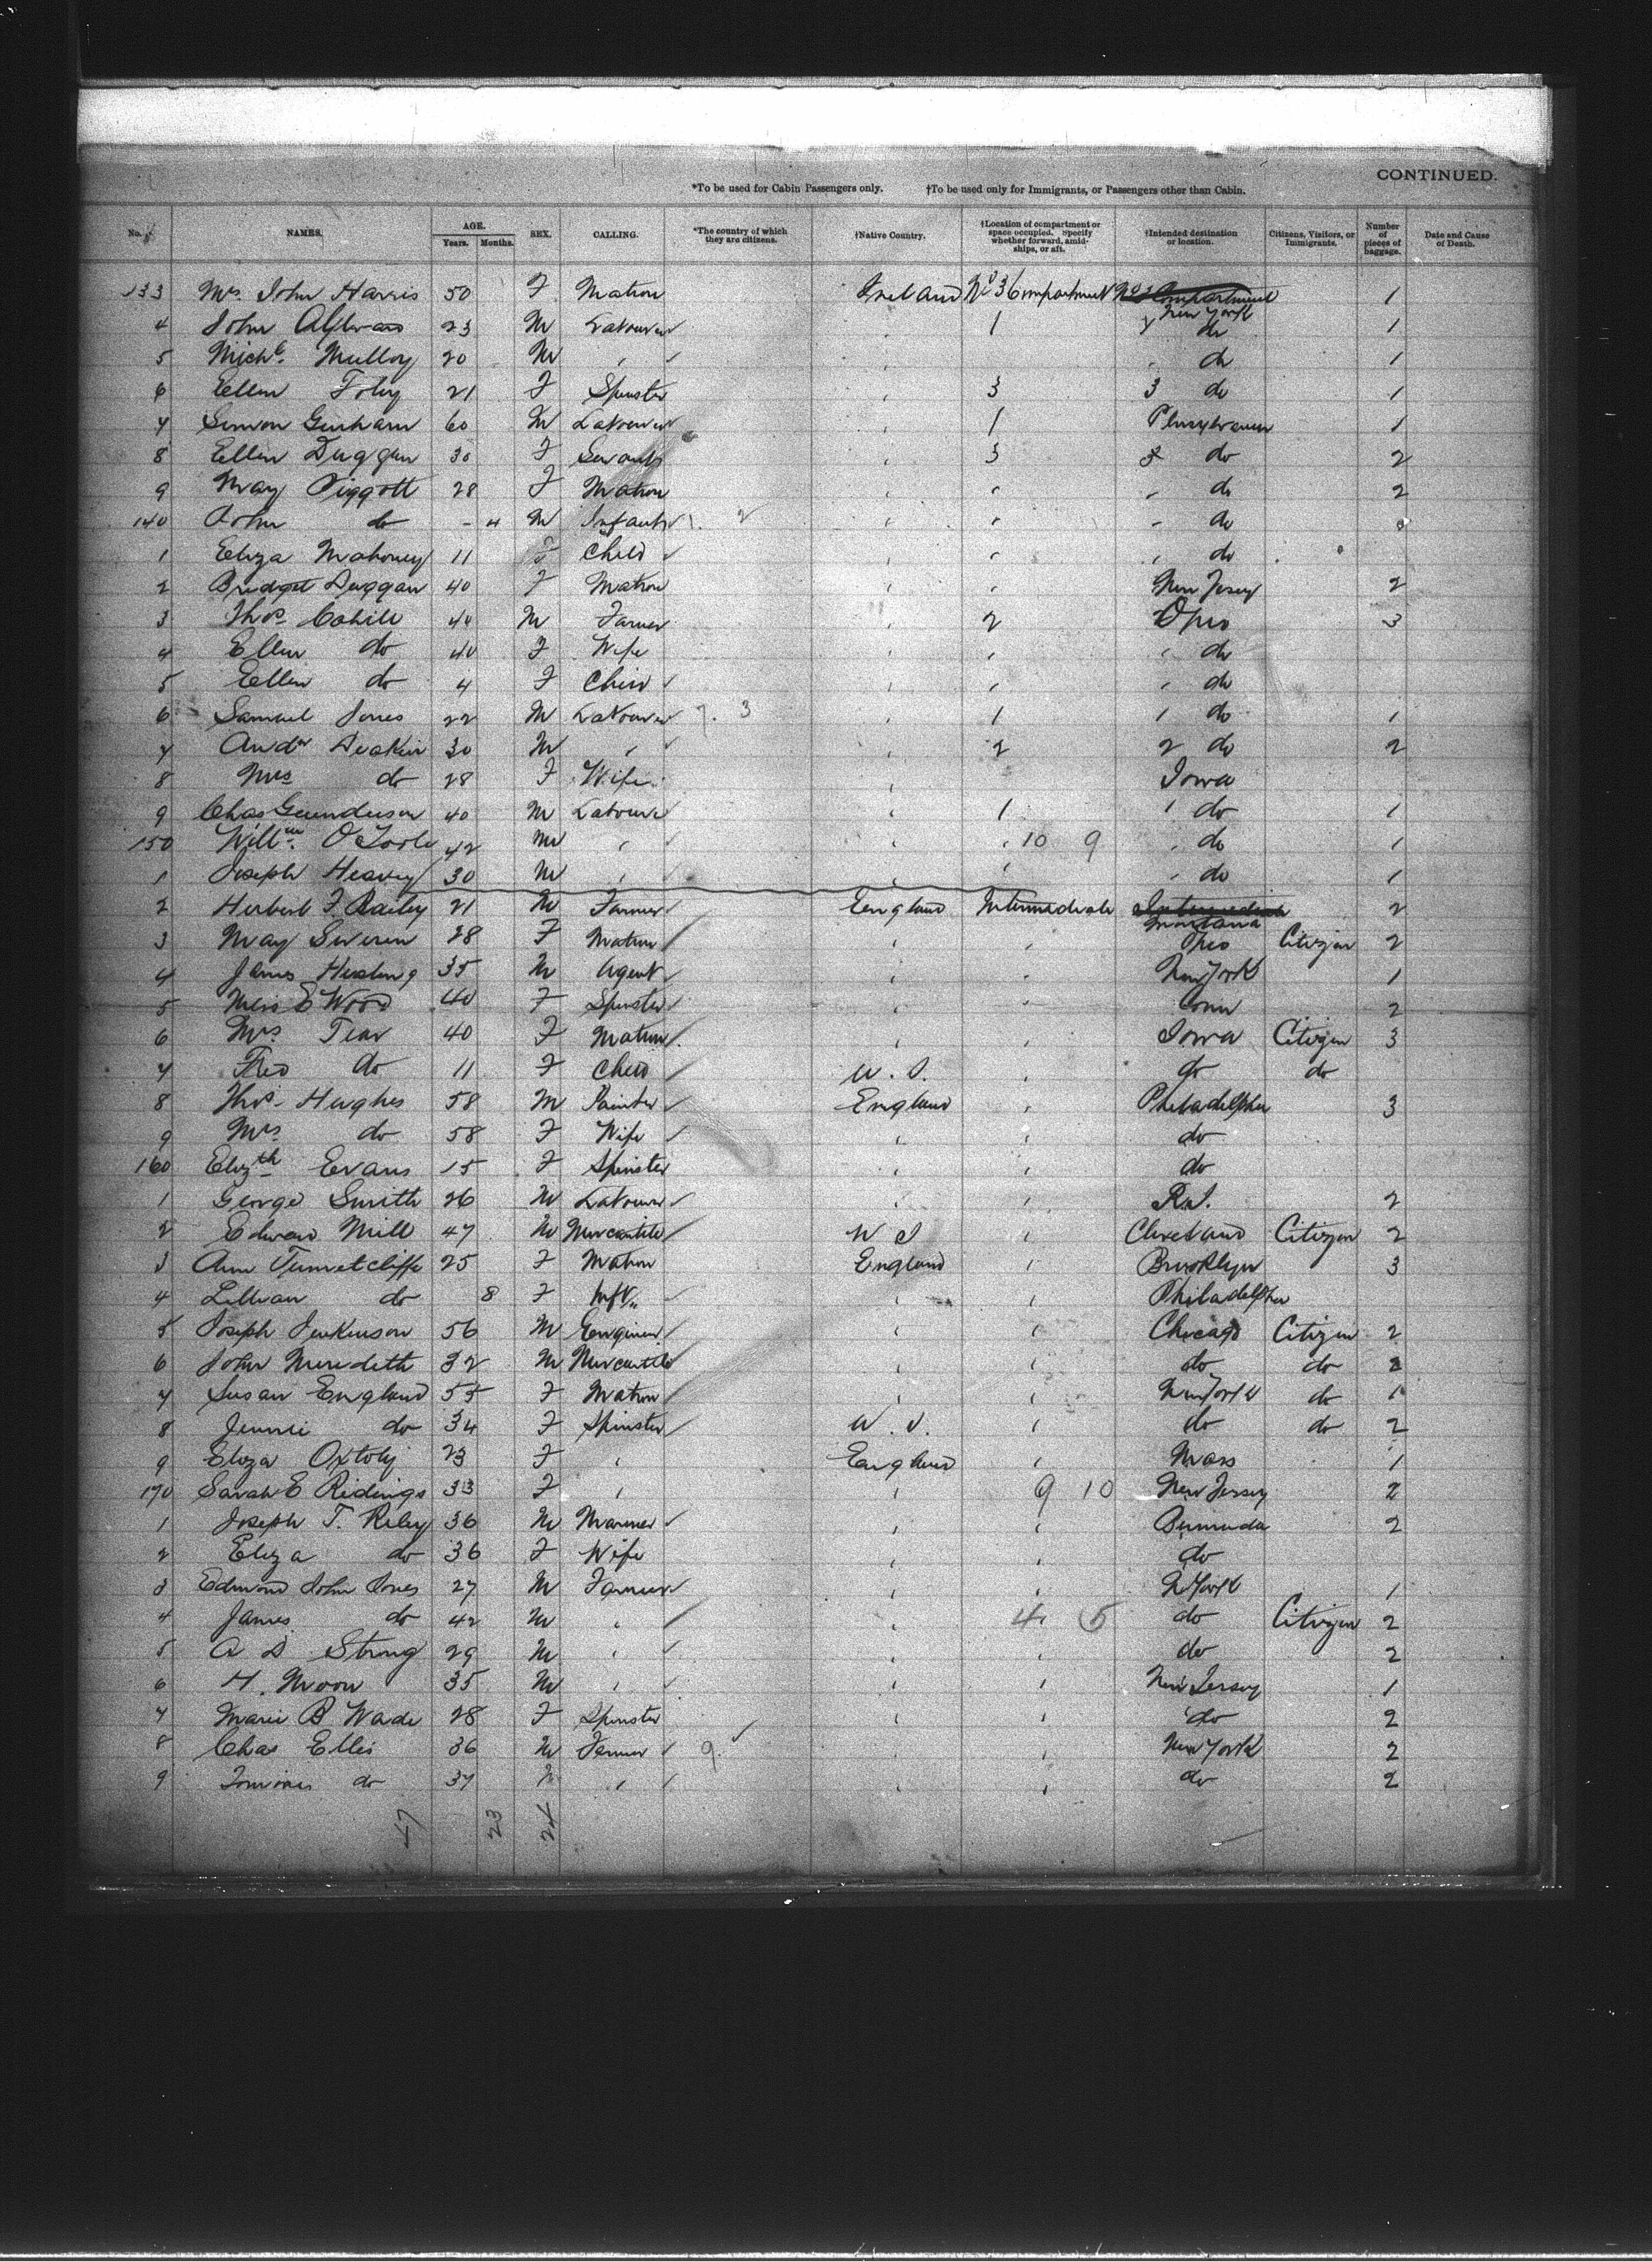 CONTINUED.
*To be used for Cabin Passengers only. †To be used only for Immigrants, or Passengers other than Cabin.
No. NAMES. AGE. Years. Months. SEX. CALLING. *The country of which they are citizens. †Native Country. †Location of compartment or space occupied. Specify whether forward, amidships, or aft. †Intended destination or location. Citizens, Visitors, or Immigrants. Number of pieces of baggage. Date and Cause of Death.
133 Mrs. John Harris 50 F Matron Ireland No 3 Compartment New York 1
4 John 23 M Labourer 1 do 1
5 Michl. Mulloy 20 M do 1
6 Ellen Foley 21 F Spinster 3 3 do 1
7 Simon 60 M Labourer 1 1
8 Ellen Duggan 30 F Servant 3 3 do 2
9 May Piggott 28 F Matron do 2
140 John do - 4 M Infant 2 do
1 Eliza Mahoney 11 F Child do
2 Bridget Duggan 40 F Matron New Jersey 2
3 Thos. Cahill 40 M Farmer 2 Ohio 3
4 Ellen do 40 F Wife do
5 Ellen do 4 F Child do
6 Samuel Jones 22 M Labourer 7. 3 1 1 do 1
7 Andw Deakin 30 M 2 2 do 2
8 Mrs do 28 F Wife Iowa
9 Chas Gunderson 40 M Labourer 1 do 1
150 Willm. O'Toole 42 M 10 9 do 1
1 Joseph Heavey 30 M do 1
2 Herbert F. Bailey 21 M Farmer England Intermediate Intermediate Montana 2
3 May 28 F Matron Ohio Citizen 2
4 James 35 M Agent New York 1
5 Miss E Wood 40 F Spinster Conn 2
6 Mrs Tear 40 F Matron Iowa Citizen 3
7 Fred do 11 F Child U.S. do do
8 Thos. Hughes 58 M Painter England Philadelphia 3
9 Mrs. do 58 F Wife do
160 Elizth Evans 15 F Spinster do
1 George Smith 26 M Labourer R.I. 2
2 Edward Mill 47 M Mercantile U S Cleveland Citizen 2
3 Ann Tunnetcliffe 25 F Matron England Brooklyn 3
4 Lillian do 8 F Inft. Philadelphia
5 Joseph Jenkinson 56 M Engineer Chicago Citizen 2
6 John Meredith 32 M Mercantile do do 2
7 Susan England 55 F Matron New York do 1
8 Jennie do 34 F Spinster U.S. do do 2
9 Eliza Oxtoby 23 F England Mass 1
170 Sarah E Ridings 33 F 9 10 New Jersey 2
1 Joseph T. Riley 36 M Mariner Bermuda 2
2 Eliza do 36 F Wife do
3 Edmond John Jones 27 M Farmer N York 1
4 James do 42 M 4 5 do Citizen 2
5 A D Strong 29 M do 2
6 H. Moon 35 M New Jersey 1
7 Marie B Wade 28 F Spinster do 2
8 Chas Ellis 36 M Farmer 9. New York 2
9 do 37 M do 2
47 23 24